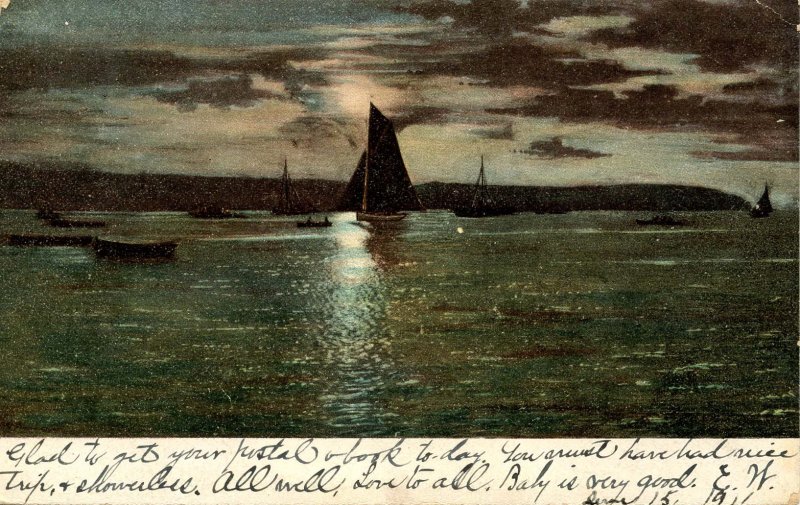 Glad to get your postal & book to-day. You must have had nice
trip, & showerless. All well, Love to all. Baby is very good. E. W.
15, 1911